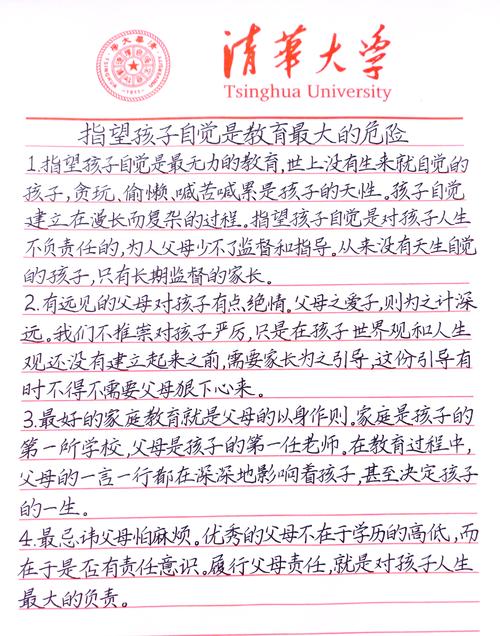 清華大学
Tsinghua University
指望孩子自觉是教育最大的危险
1.指望孩子自觉是最无力的教育,世上没有生来就自觉的
孩子,贪玩、偷懒、喊苦喊累是孩子的天性。孩子自觉
建立在漫长而复杂的过程。指望孩子自觉是对孩子人生
不负责任的,为人父母少不了监督和指导。从来没有天生自觉
的孩子,只有长期监督的家长。
2.有远见的父母对孩子有点绝情。父母之爱子,则为之计深
远。我们不推崇对孩子严厉,只是在孩子世界观和人生
观还没有建立起来之前,需要家长为之引导,这份引导有
时不得不需要父母狠下心来。
3.最好的家庭教育就是父母的以身作则。家庭是孩子的
第一所学校,父母是孩子的第一任老师。在教育过程中,
父母的一言一行都在深深地影响着孩子,甚至决定孩子
的一生。
4.最忌讳父母怕麻烦。优秀的父母不在于学历的高低,而
在于是否有责任意识。履行父母责任,就是对孩子人生
最大的负责。